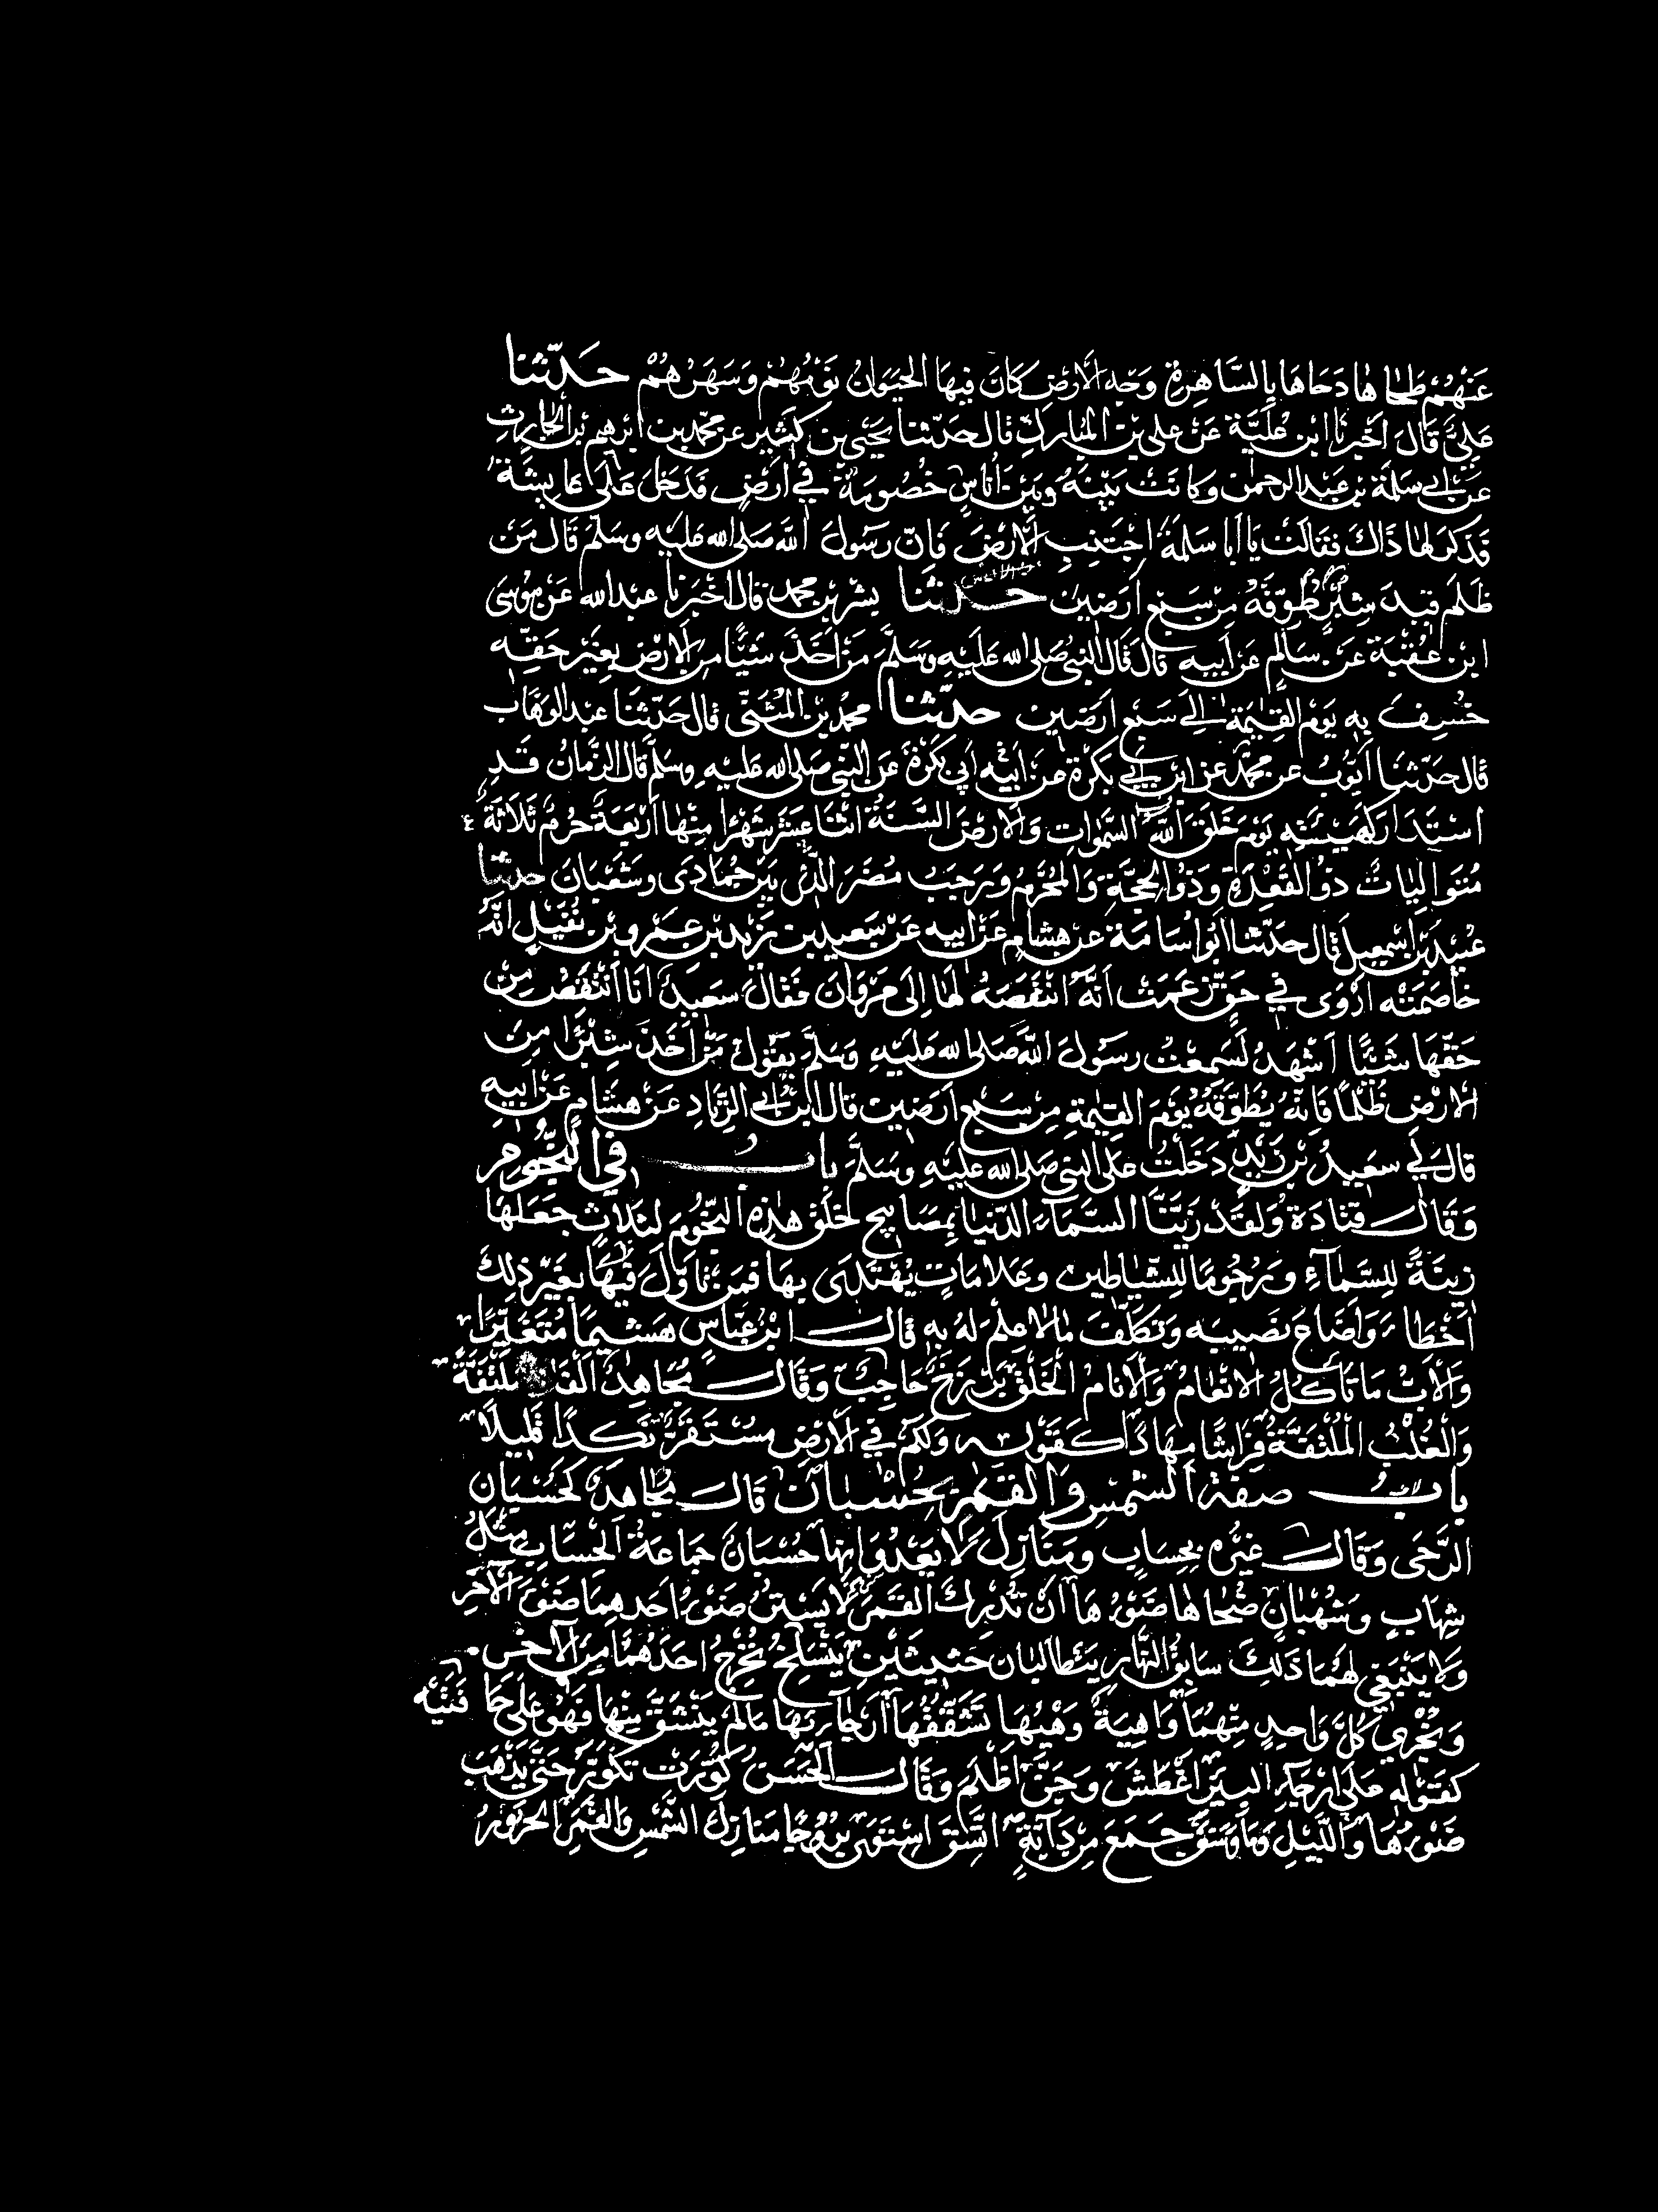 عَنْهُمْ طَحَاهَا دَحَاهَا بِالسَّاهِرَةِ وَجْهِ الْأَرْضِ كَانَ فِيهَا الْحَيَوَانُ نَوْمُهُمْ وَسَهَرُهُمْ حَدَّثَنَا
عَلِيٌّ قَالَ أَخْبَرَنَا ابْنُ عُلَيَّةَ عَنْ عَلِي بْنِ الْمُبَارَكِ قَالَ حَدَّثَنَا يَحْيَى بْنُ كَثِيرٍ عَنْ مُحَمَّدِ بْنِ ابْرهِيمَ بْنِ الْحَارِثِ
عَنْ أَبِي سَلَمَةَ بْنِ عَبْدِ الرَّحْمٰنِ وَكَانَتْ بَيْنَهُ وَبَيْنَ أُنَاسٍ خُصُومَةٌ فِي أَرْضٍ فَدَخَلَ عَلَى عَايِشَةَ
فَذَكَرَ لَهَا ذَاكَ فَقَالَتْ يَا أَبَا سَلَمَةَ اجْتَنِبِ الْأَرْضَ فَإِنَّ رَسُولَ اللهِ صَلَّى اللهُ عَلَيْهِ وَسَلَّمَ قَالَ مَنْ
ظَلَمَ قِيدَ شِبْرٍ طُوِّقَهُ مِنْ سَبْعِ أَرَضِينَ حَدَّثَنَا بِشْرُ بْنُ مُحَمَّدٍ قَالَ أَخْبَرَنَا عَبْدُ اللهِ عَنْ مُوسَى
ابْنِ عُقْبَةَ عَنْ سَالِمٍ عَنْ أَبِيهِ قَالَ قَالَ النَّبِيُّ صَلَّى اللهُ عَلَيْهِ وَسَلَّمَ مَنْ أَخَذَ شَيْئًا مِنَ الْأَرْضِ بِغَيْرِ حَقِّهِ
خُسِفَ بِهِ يَوْمَ الْقِيٰمَةِ إِلَى سَبْعِ أَرَضِينَ حَدَّثَنَا مُحَمَّدُ بْنُ الْمُثَنَّى قَالَ حَدَّثَنَا عَبْدُ الْوَهَّابِ
قَالَ حَدَّثَنَا أَيُّوبُ عَنْ مُحَمَّدٍ عَنِ ابْنِ أَبِي بَكْرَةَ عَنْ أَبِيهِ أَبِي بَكْرَةَ عَنِ النَّبِيِّ صَلَّى اللهُ عَلَيْهِ وَسَلَّمَ قَالَ الزَّمَانُ قَدِ
اسْتَدَارَ كَهَيْئَتِهِ يَوْمَ خَلَقَ اللهُ السَّمٰوَاتِ وَالْأَرْضَ السَّنَةُ اثْنَا عَشَرَ شَهْرًا مِنْهَا أَرْبَعَةٌ حُرُمٌ ثَلَاثَةٌ
مُتَوَالِيَاتٌ ذُو الْقَعْدَةِ وَذُو الْحِجَّةِ وَالْمُحَرَّمُ وَرَجَبُ مُضَرَ الَّذِي بَيْنَ جُمَادَى وَشَعْبَانَ حَدَّثَنَا
عُبَيْدُ بْنُ إِسْمعِيلَ قَالَ حَدَّثَنَا أَبُو أُسَامَةَ عَنْ هِشَامٍ عَنْ أَبِيهِ عَنْ سَعِيدِ بْنِ زَيْدِ بْنِ عَمْرِو بْنِ نُفَيْلٍ أَنَّهُ
خَاصَمَتْهُ أَرْوَى فِي حَقٍّ زَعَمَتْ أَنَّهُ انْتَقَصَهُ لَهَا إِلَى مَرْوَانَ فَقَالَ سَعِيدٌ أَنَا أَنْتَقِصُ مِنْ
حَقِّهَا شَيْئًا أَشْهَدُ لَسَمِعْتُ رَسُولَ اللهِ صَلَّى اللهُ عَلَيْهِ وَسَلَّمَ يَقُولُ مَنْ أَخَذَ شِبْرًا مِنَ
الْأَرْضِ ظُلْمًا فَإِنَّهُ يُطَوَّقُهُ يَوْمَ الْقِيٰمَةِ مِنْ سَبْعِ أَرَضِينَ قَالَ ابْنُ أَبِي الزِّنَادِ عَنْ هِشَامٍ عَنْ أَبِيهِ
قَالَ لِي سَعِيدُ بْنُ زَيْدٍ دَخَلْتُ عَلَى النَّبِيِّ صَلَّى اللهُ عَلَيْهِ وَسَلَّمَ بَابٌ فِي النُّجُومِ
وَقَالَ قَتَادَةُ وَلَقَدْ زَيَّنَّا السَّمَاءَ الدُّنْيَا بِمَصَابِيحَ خَلَقَ هٰذِهِ النُّجُومَ لِثَلَاثٍ جَعَلَهَا
زِينَةً لِلسَّمَآءِ وَرُجُومًا لِلشَّيَاطِينِ وَعَلَامَاتٍ يُهْتَدَى بِهَا فَمَنْ تَأَوَّلَ فِيهَا بِغَيْرِ ذٰلِكَ
أَخْطَأَ وَأَضَاعَ نَصِيبَهُ وَتَكَلَّفَ مَا لَا عِلْمَ لَهُ بِهِ قَالَ ابْنُ عَبَّاسٍ هَشِيمًا مُتَغَيِّرًا
وَالْأَبُّ مَا تَأْكُلُ الْأَنْعَامُ وَالْأَنَامُ الْخَلْقُ بَرْزَخٌ حَاجِبٌ وَقَالَ مُجَاهِدٌ أَلْفَافًا مُلْتَفَّةً
وَالْغُلْبُ الْمُلْتَفَّةُ فِرَاشًا مِهَادًا كَقَوْلِهِ وَلَكُمْ فِي الْأَرْضِ مُسْتَقَرٌّ نَكِدًا قَلِيلًا
بَابُ صِفَةِ الشَّمْسِ وَالْقَمَرِ بِحُسْبَانٍ قَالَ مُجَاهِدٌ كَحُسْبَانِ
الرَّحَى وَقَالَ غَيْرُهُ بِحِسَابٍ وَمَنَازِلَ لَا يَعْدُوَانِهَا حُسْبَانٌ جَمَاعَةُ الْحِسَابِ مِثْلُ
شِهَابٍ وَشُهْبَانٍ ضُحَاهَا ضَوْءُهَا أَنْ تُدْرِكَ الْقَمَرَ لَا يَسْتُرُ ضَوْءُ أَحَدِهِمَا ضَوْءَ الْآخَرِ
وَلَا يَنْبَغِي لَهُمَا ذٰلِكَ سَابِقُ النَّهَارِ يَتَطَالَبَانِ حَثِيثَيْنِ نَسْلَخُ نُخْرِجُ أَحَدَهُمَا مِنَ الْآخَرِ
وَنُجْرِي كُلَّ وَاحِدٍ مِنْهُمَا وَاهِيَةٌ وَهْيُهَا تَشَقُّقُهَا أَرْجَائِهَا مَا لَمْ يَنْشَقَّ مِنْهَا فَهُوَ عَلَى حَافَتَيْهِ
كَقَوْلِهِ عَلَى أَرْجَاءِ الْبِيرِ أَغْطَشَ وَجَنَّ أَظْلَمَ وَقَالَ الْحَسَنُ كُوِّرَتْ تُكَوَّرُ حَتَّى يَذْهَبَ
ضَوْءُهَا وَاللَّيْلِ وَمَا وَسَقَ جَمَعَ مِنْ دَآبَّةٍ اتَّسَقَ اسْتَوَى بُرُوجًا مَنَازِلَ الشَّمْسِ وَالْقَمَرِ الْحَرُورُ